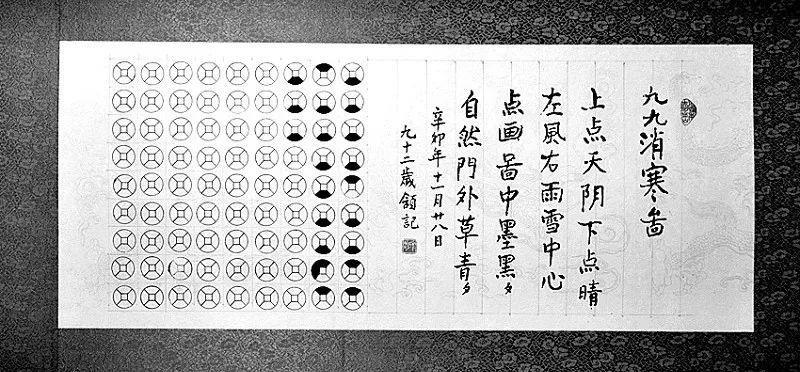 九九消寒啚
上点天阴下点晴
左風右雨雪中心
点画啚中墨黑々
自然門外草青々
辛卯年十一月廿八日
九十二歲領記